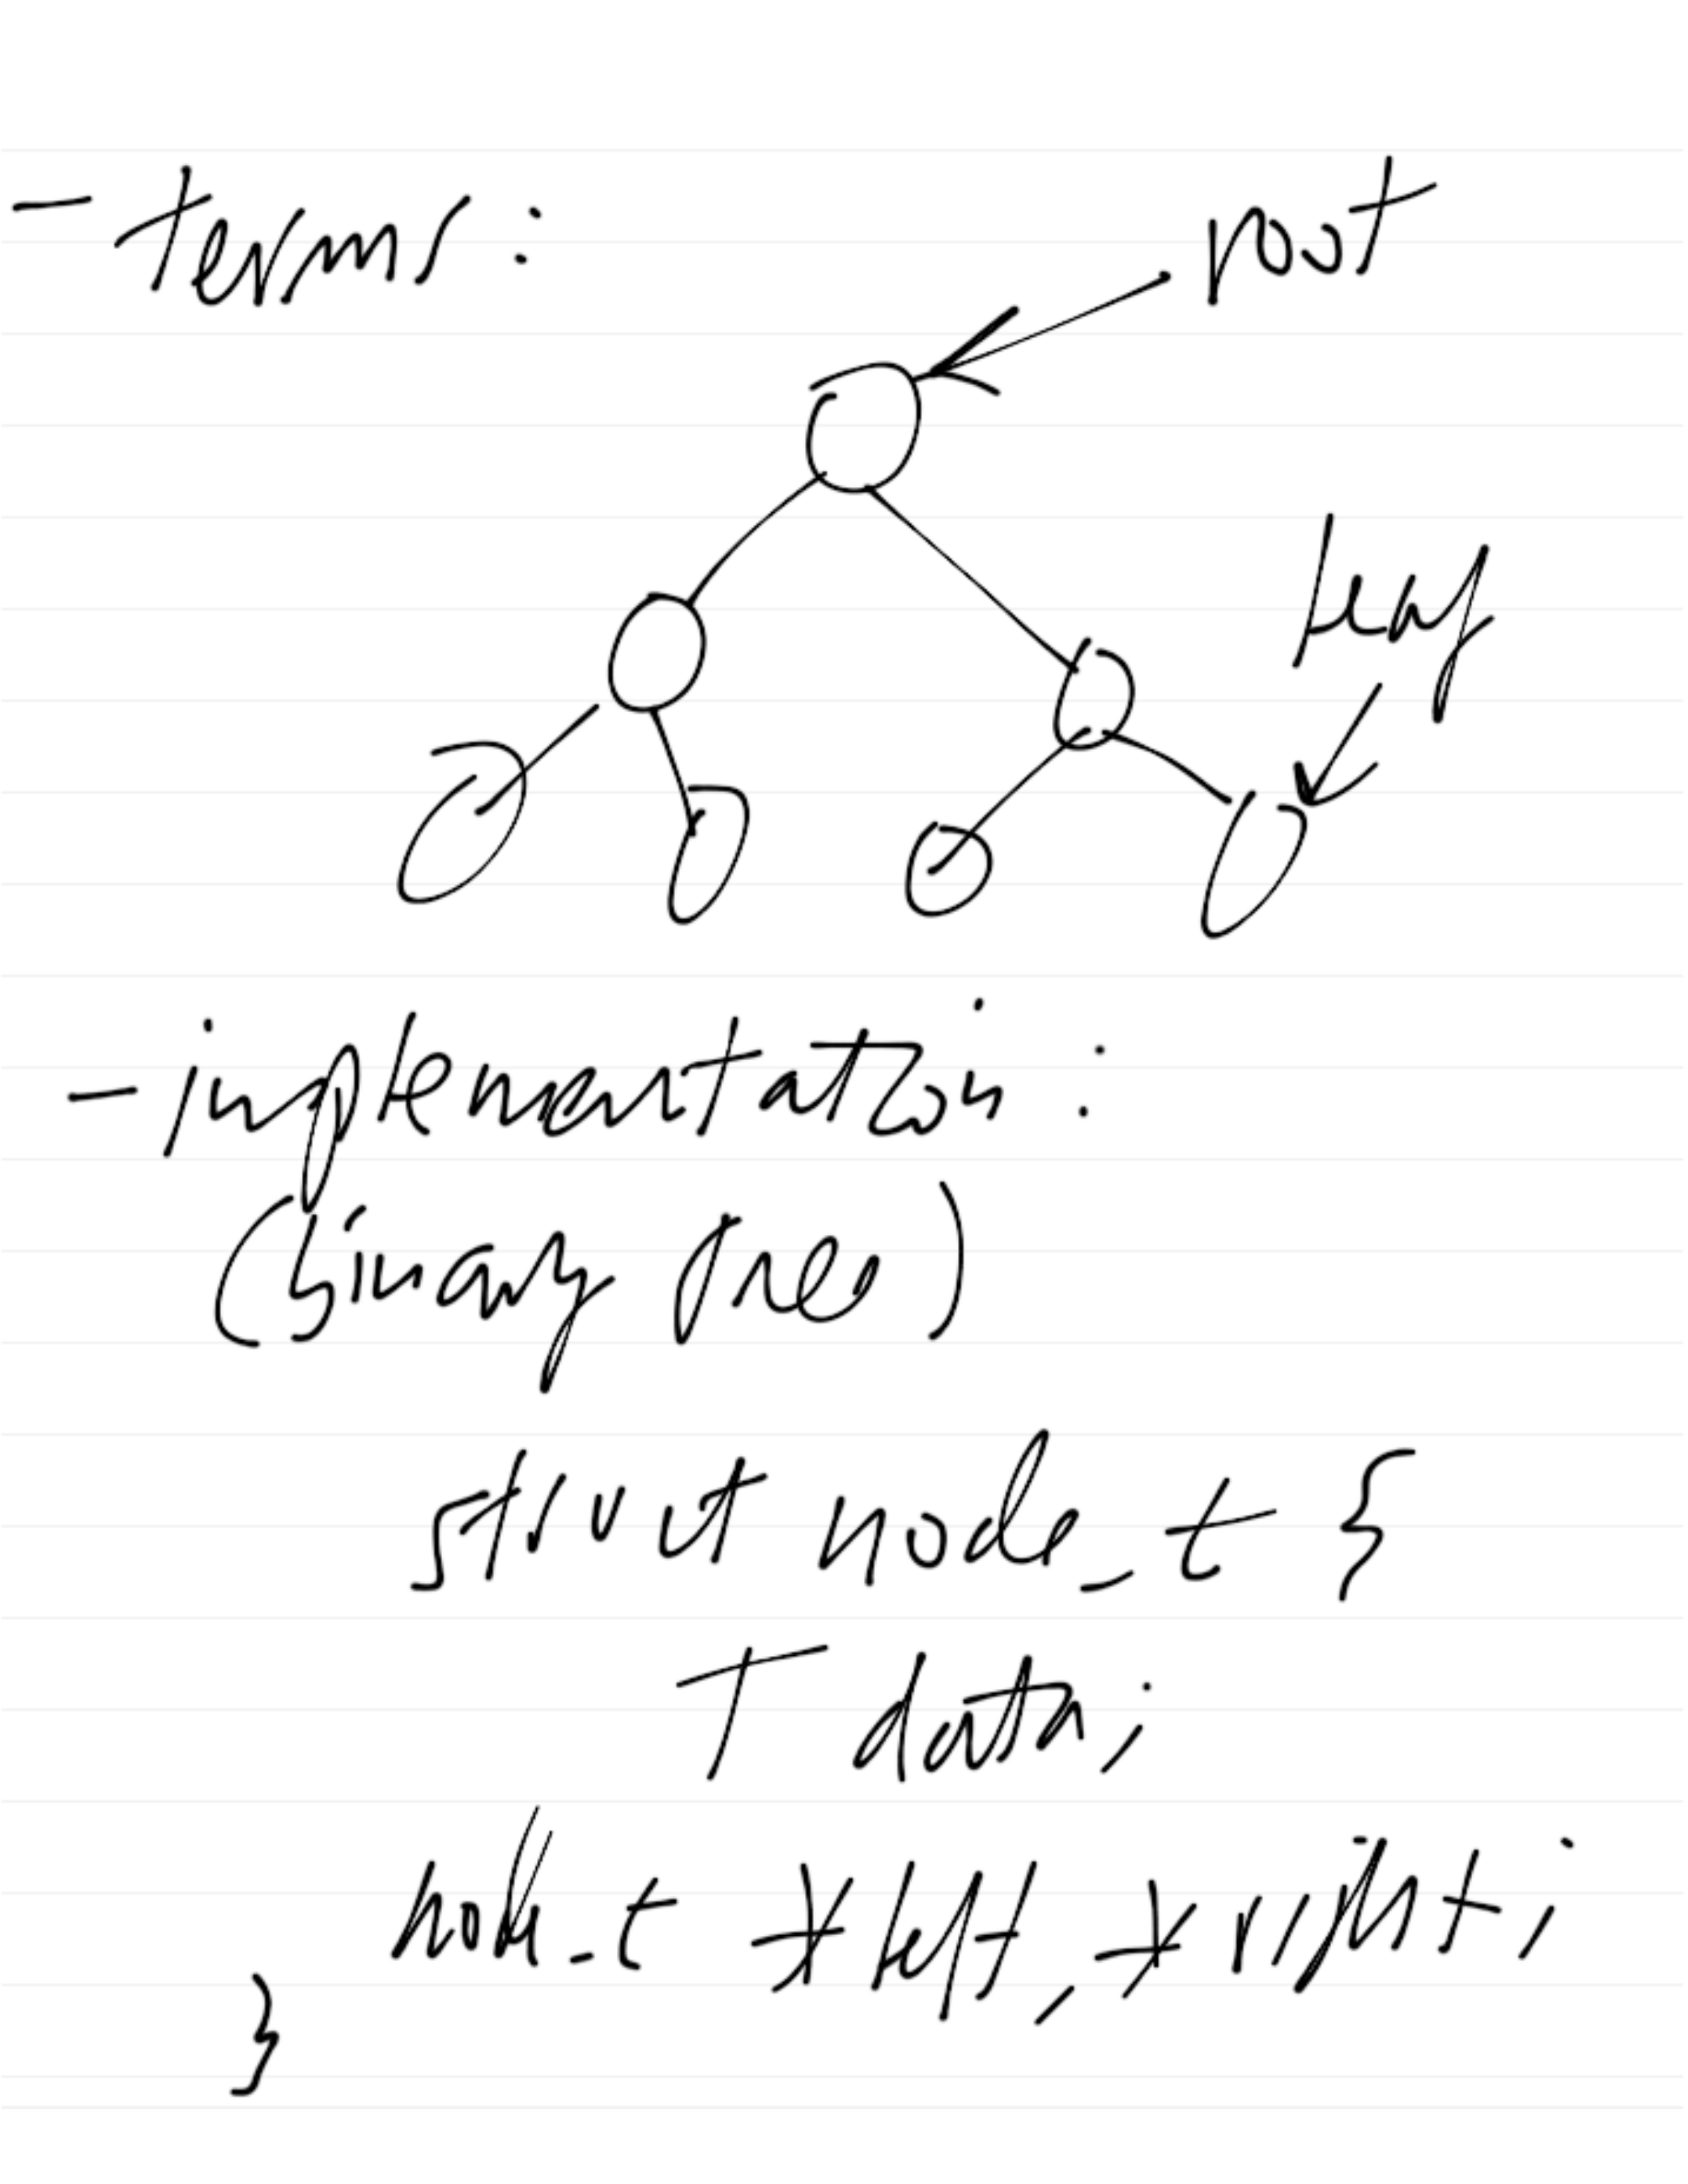 - terms :
root
leaf
- implementation :
(binary tree)
struct node_t {
T data;
node_t *left, *right;
}